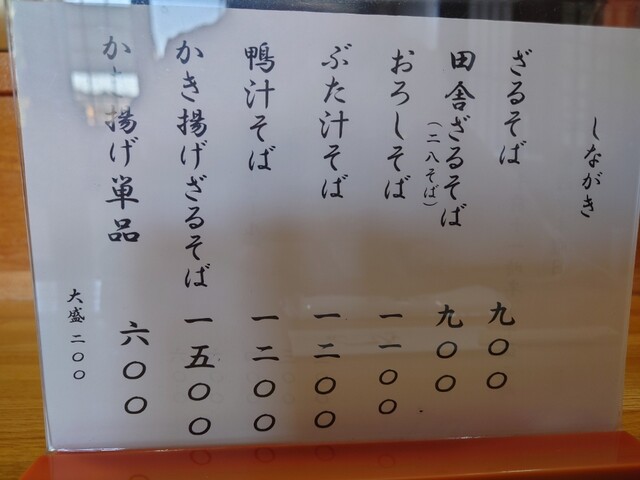 しながき
ざるそば 九〇〇
田舎ざるそば 九〇〇
(二八そば)
おろしそば 一一〇〇
ぶた汁そば 一二〇〇
鴨汁そば 一二〇〇
かき揚げざるそば 一五〇〇
かき揚げ単品 六〇〇
大盛二〇〇